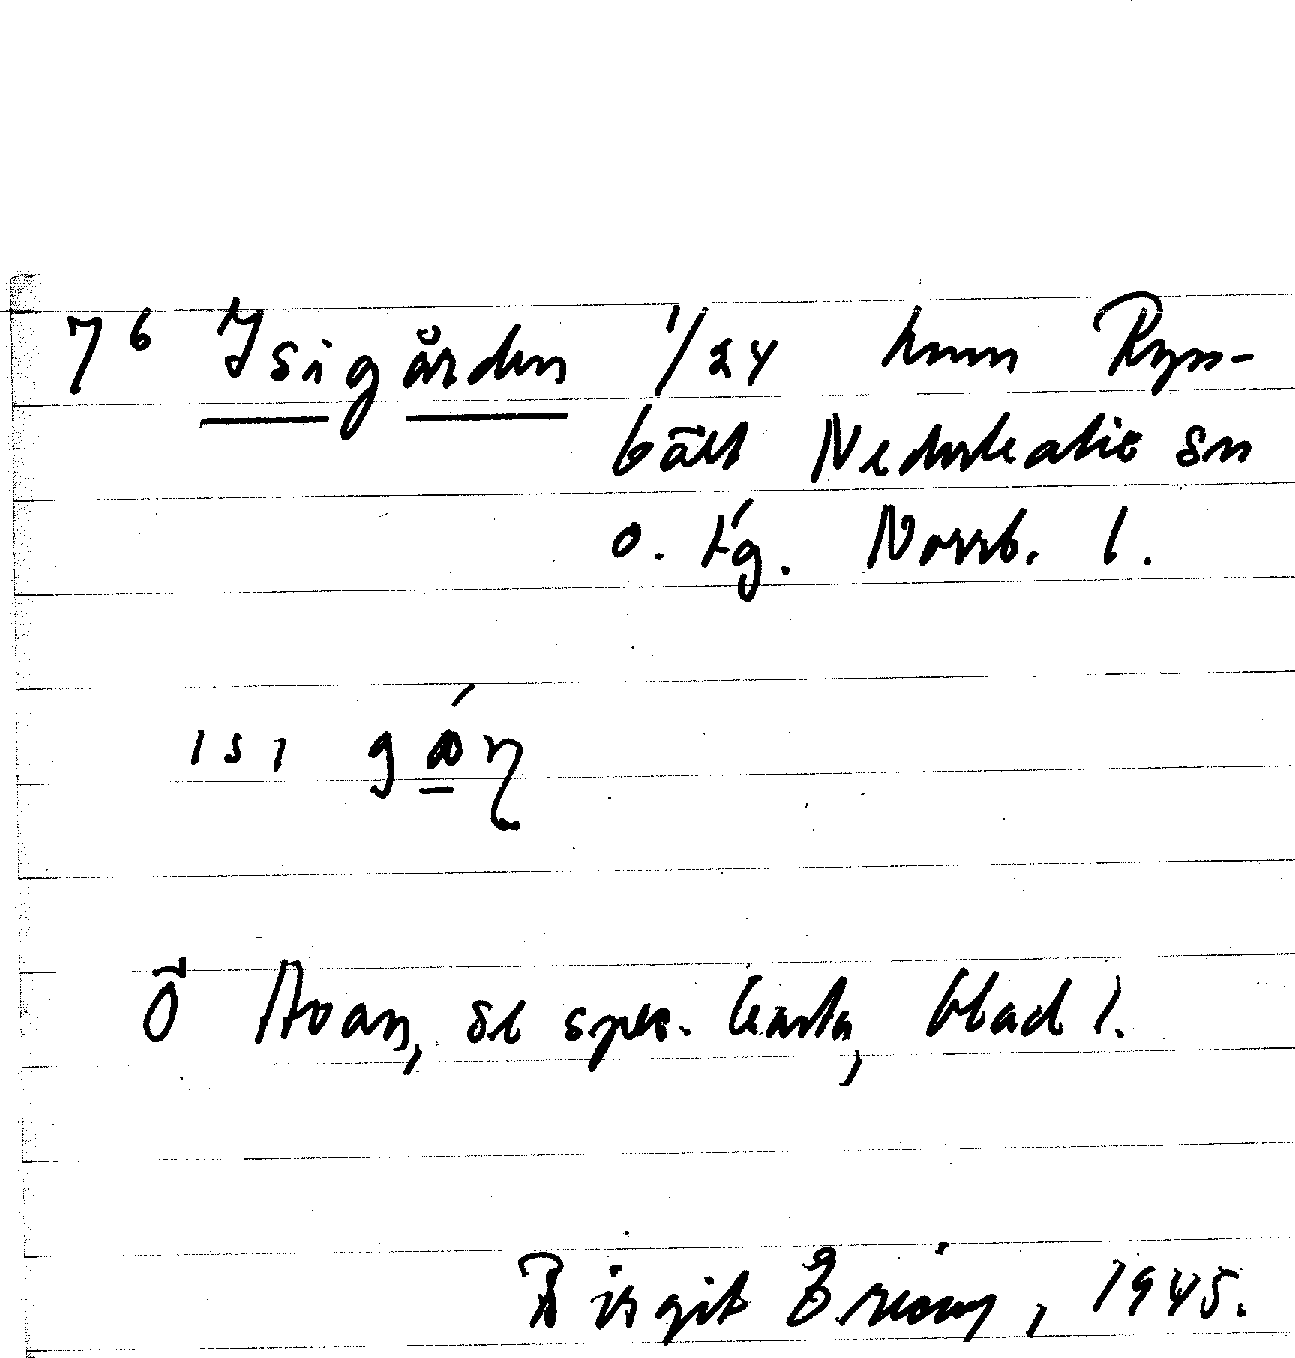 7⁶ Isigården 1/24 hmn Ryss-
bält Nederkalix sn
o. tg. Norrb. l.
ısı gǻɳ
Ö Åvan, se spec. karta, blad 1.
Birgit Falck?, 1945.